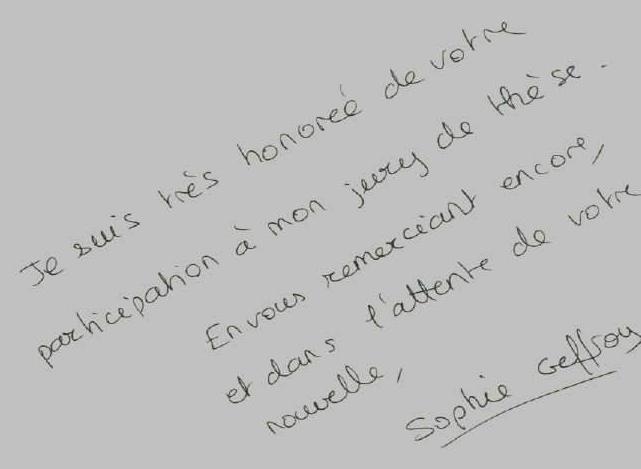 Je suis très honoreé de votre
participation à mon jury de thèse.
En vous remerciant encore,
et dans l'attente de votre
nouvelle,
Sophie Geffroy